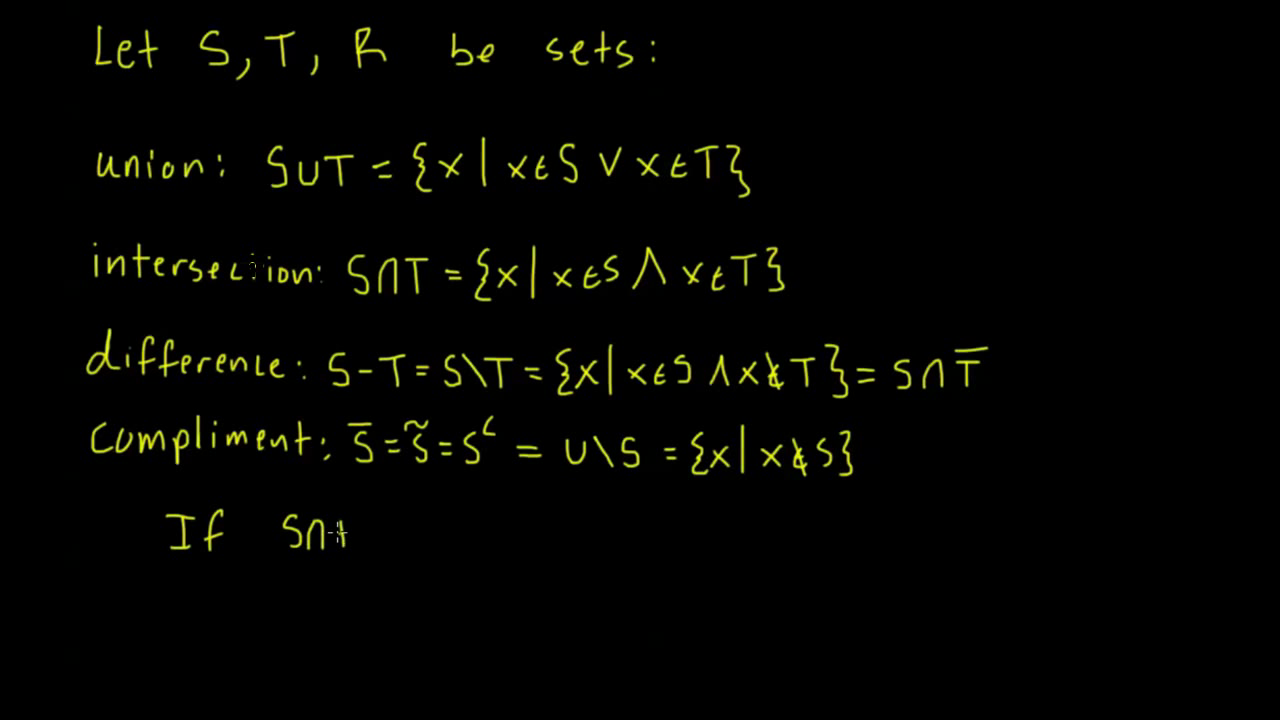 Let S, T, R be sets:
union: S∪T = {x | x∈S ∨ x∈T}
intersection: S∩T = {x | x∈S ∧ x∈T}
difference: S-T = S\T = {x | x∈S ∧ x∉T} = S∩T̅
Compliment: S̅ = S̃ = Sᶜ = U\S = {x | x∉S}
If S∩